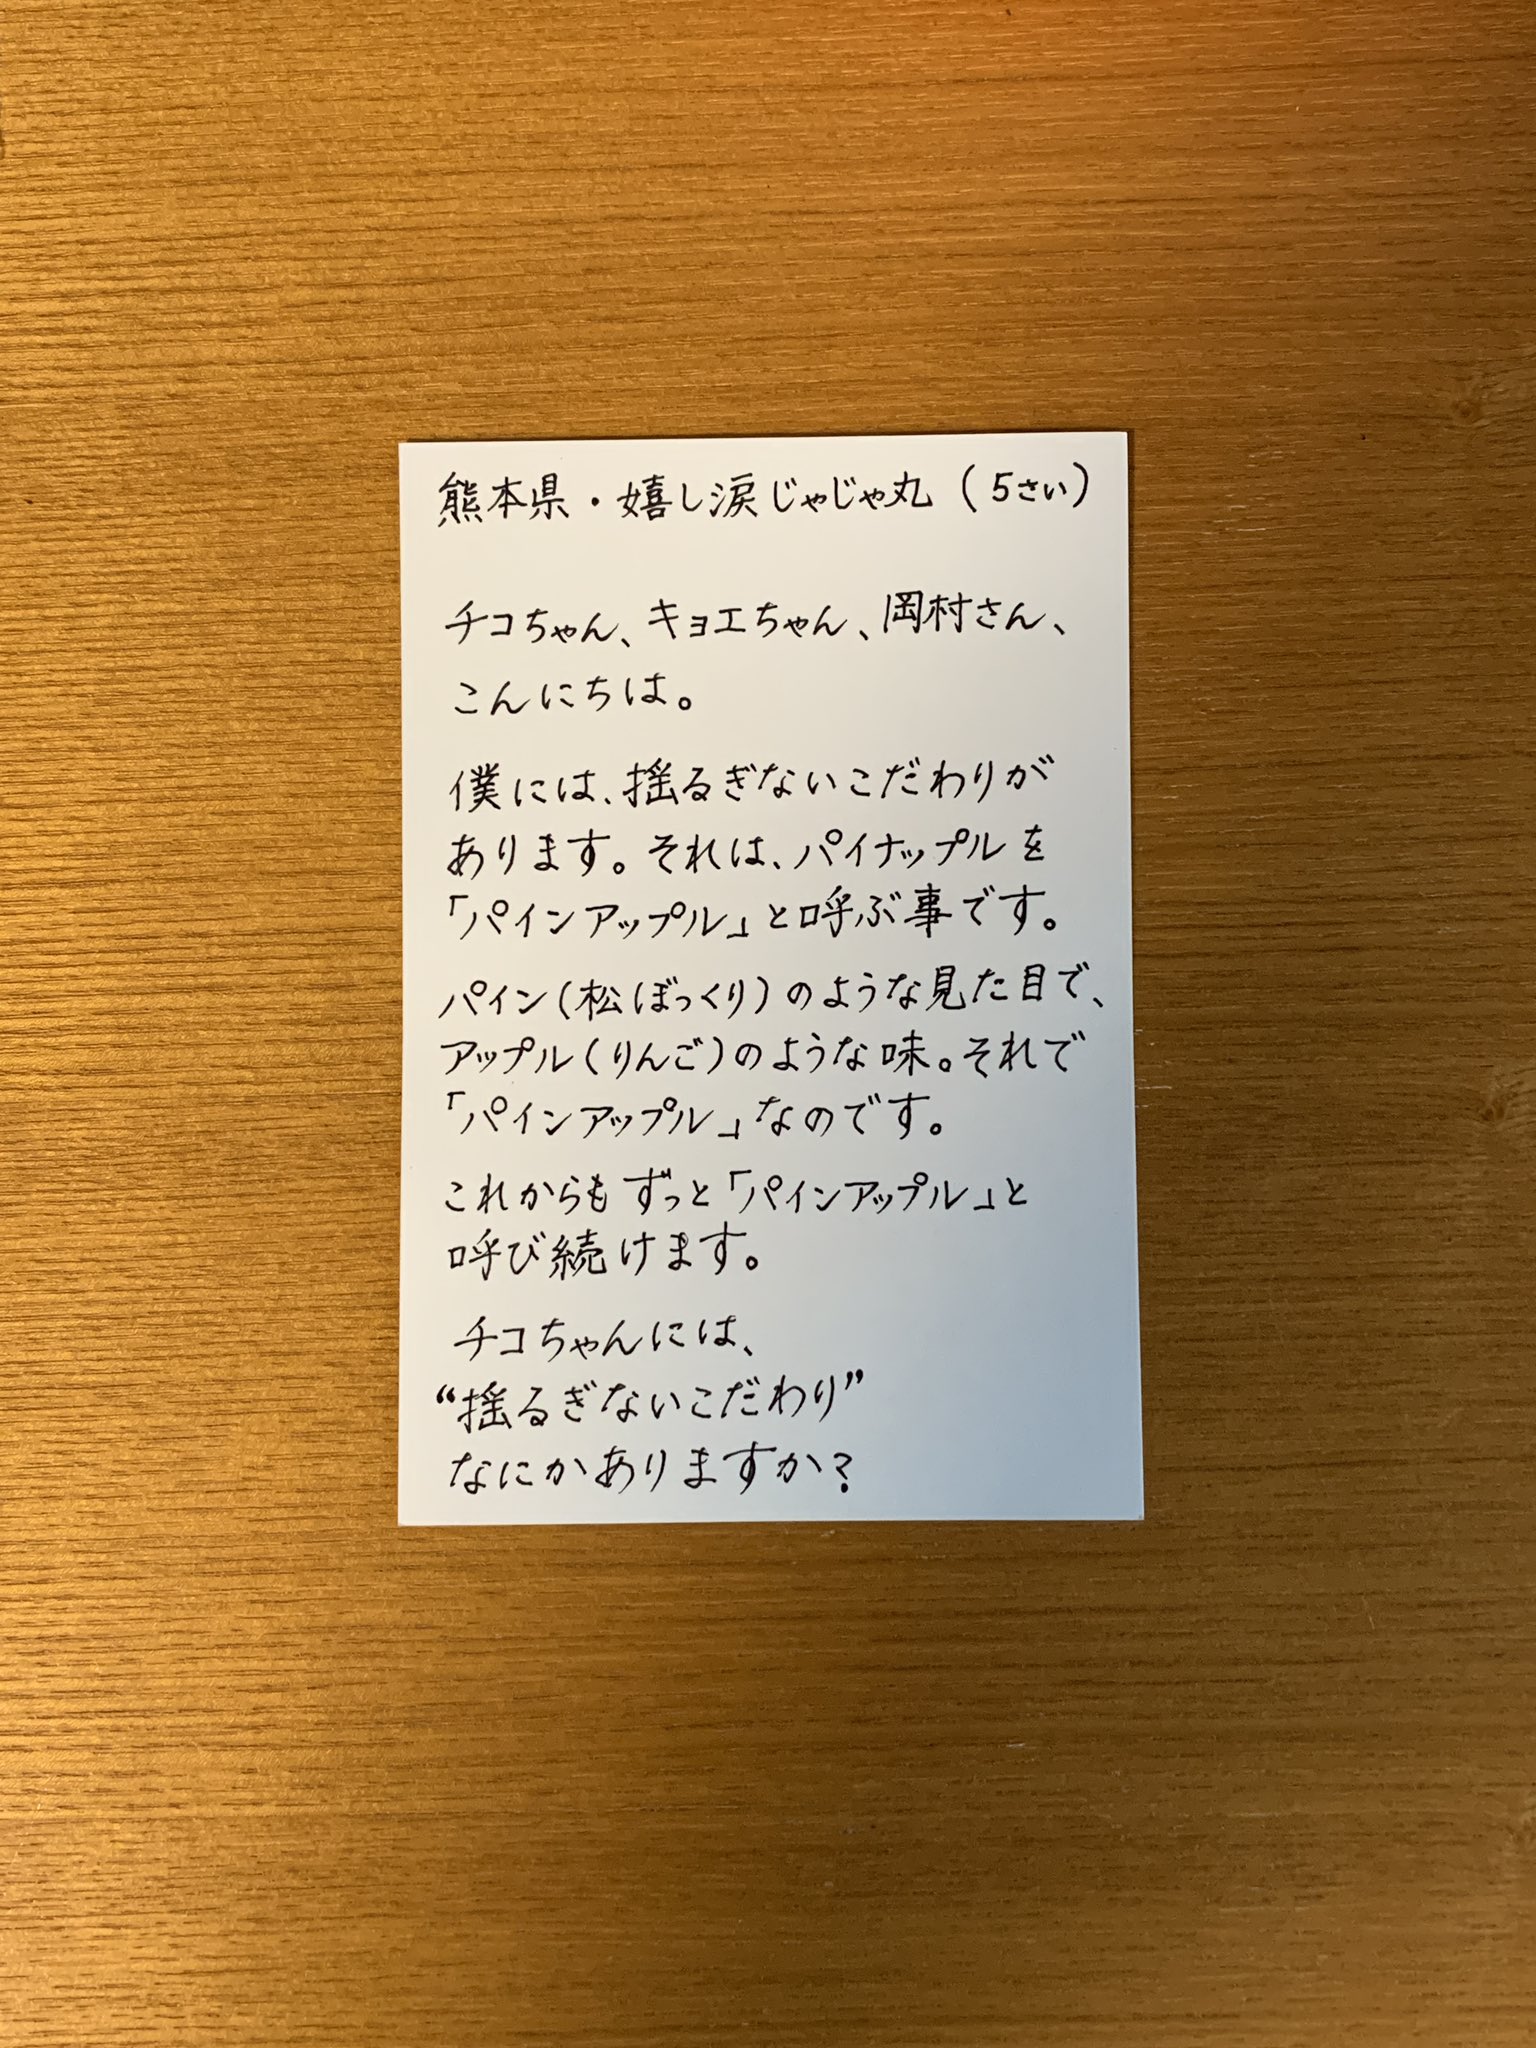 熊本県・嬉し涙じゃじゃ丸（5さい）
チコちゃん、キョエちゃん、岡村さん、
こんにちは。
僕には、揺るぎないこだわりが
あります。それは、パイナップルを
「パインアップル」と呼ぶ事です。
パイン（松ぼっくり）のような見た目で、
アップル（りんご）のような味。それで
「パインアップル」なのです。
これからもずっと「パインアップル」と
呼び続けます。
チコちゃんには、
“揺るぎないこだわり”
なにかありますか？